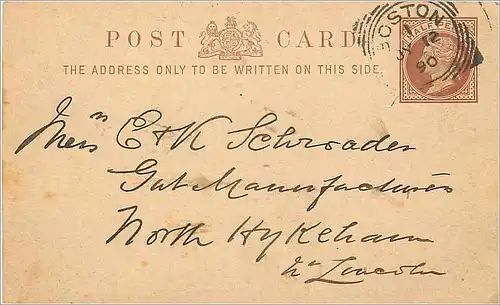 POST CARD
THE ADDRESS ONLY TO BE WRITTEN ON THIS SIDE.
BOSTON
JY 12
90
Messrs C & K Schroader
Gut Manufacturers
North Hykeham
Nr Lincoln